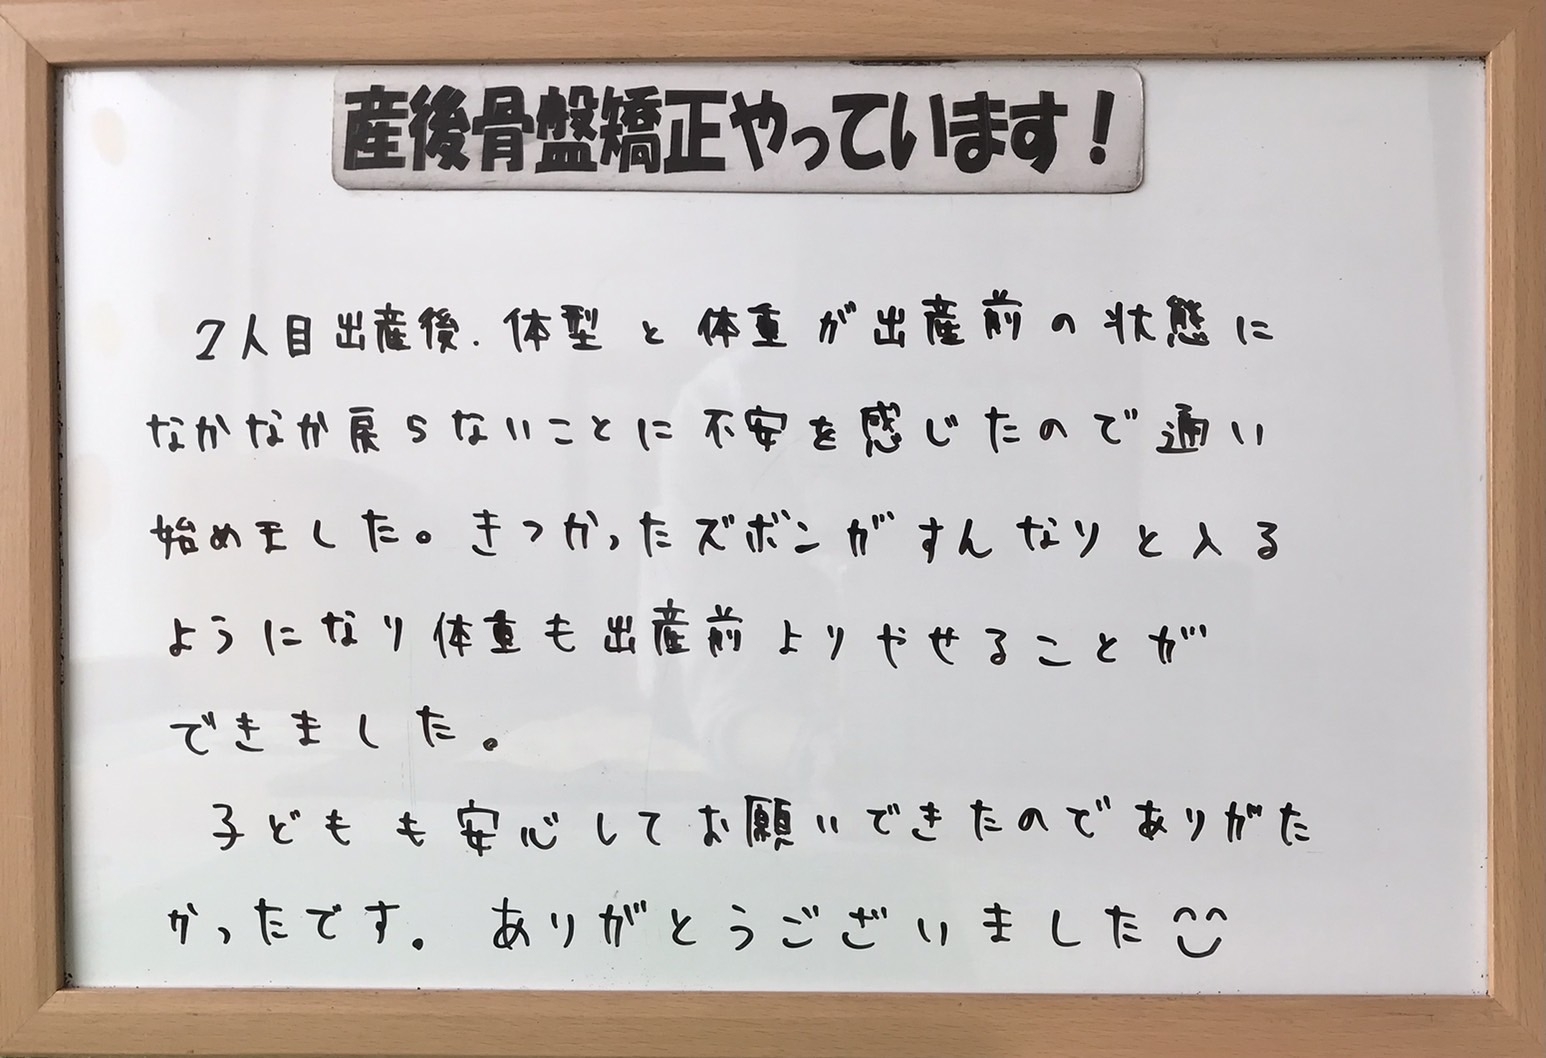 産後骨盤矯正やっています！
2人目出産後、体型と体重が出産前の状態に
なかなか戻らないことに不安を感じたので通い
始めました。きつかったズボンがすんなりと入る
ようになり体重も出産前よりやせることが
できました。
子どもも安心してお願いできたのでありがた
かったです。ありがとうございました